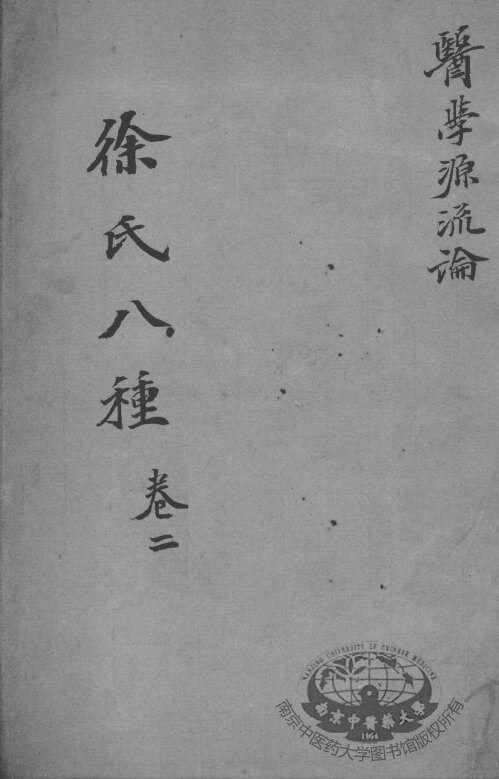 醫學源流論
徐氏八種
卷二
NANJING UNIVERSITY OF CHINESE MEDICINE
南京中醫藥大學
1954
南京中医药大学图书馆版权所有